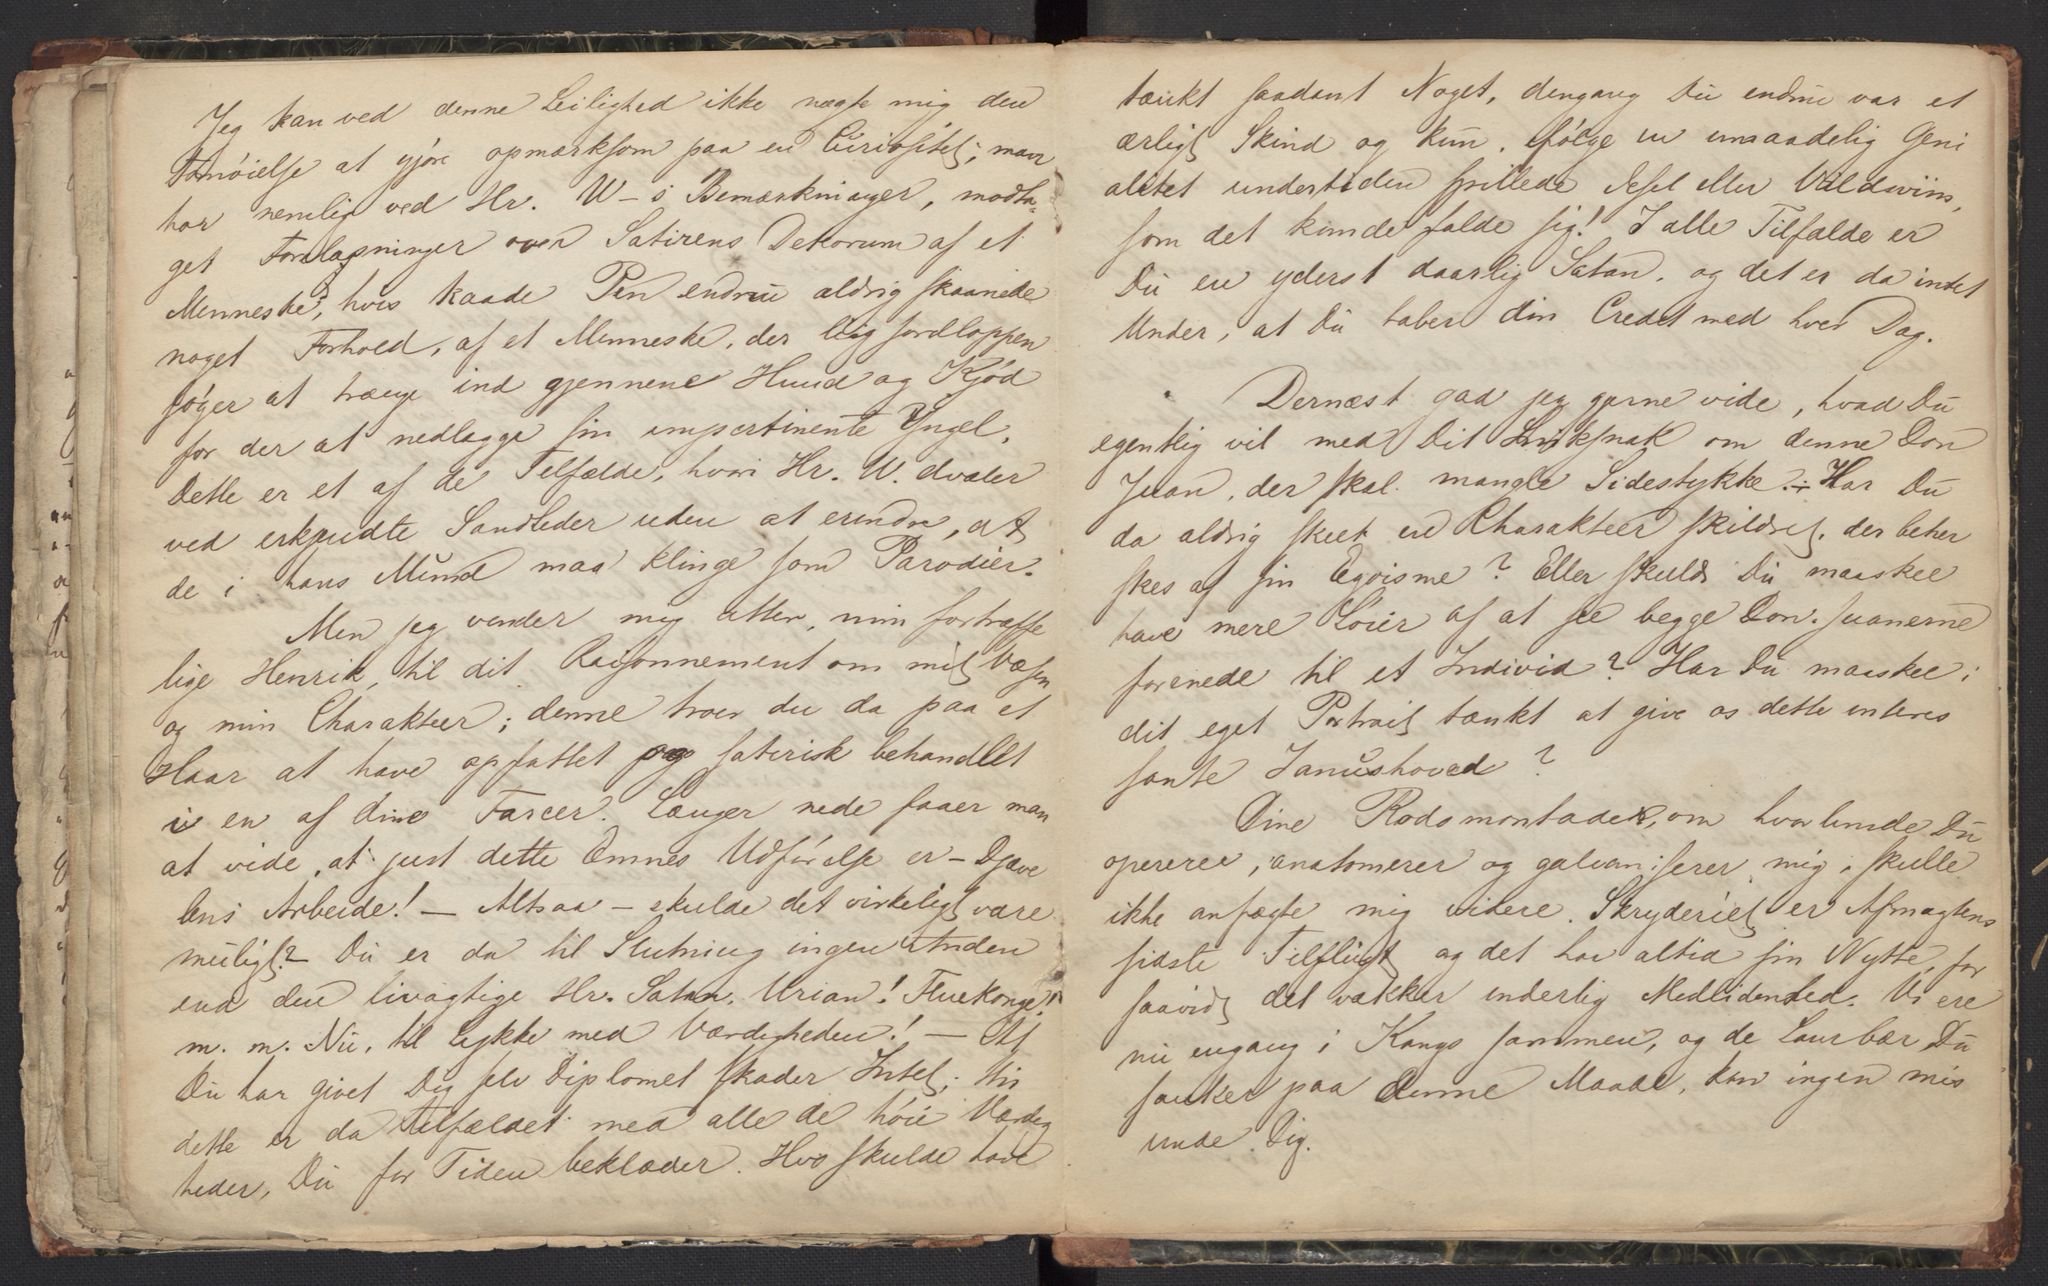 Jeg kan ved denne Leilighed ikke nægte mig den
Fornöielse at gjöre opmærksom paa en Curiositet; man
har nemlig ved Hr. W–s Bemærkninger, modta-
get Forelæsninger over Satirens Dekorum af et
Menneske, hvis kaade Pen endnu aldrig skaanede
noget Forhold, af et Menneske, der lig Jordloppen
söger at trænge ind gjennem Huud og Kjöd
for der at nedlægge sin impertinente Yngel.
Dette er et af de Tilfælde, hvori Hr. W. dvæler
ved erkjendte Sandheder uden at erindre, at
de i hans Mund maa klinge som Parodier.
Men jeg vender mig atter, min fortræffe
lige Henrik, til dit Raisonnement om mit Væsen
og min Charakteer; denne troer du da paa et
Haar at have opfattet og satirisk behandlet
i en af dine Farcer. Længer nede faaer man
at vide, at just dette Emnes Udförelse er – Djæve
lens Arbeide! – Altsaa – skulde det virkeligt være
muligt? Du er da til Slutning ingen Anden
end den livagtige Hr. Satan. Urian! Fluekonge!
m. m. Nu, til Lykke med Værdigheden! – At
Du har givet Dig selv Diplomet skader Intet; thi
dette er da Tilfældet med alle de höie Værdig
heder, Du for Tiden beklæder. Hvo skulde have
tænkt saadant Noget, dengang Du endnu var et
ærligt Skind og kun, ifölge en umaadelig Geni
alitet undertiden spillede Esel eller Vildsviin,
som det kunde falde sig! I alle Tilfælde er
Du en yderst daarlig Satan, og det er da intet
Under, at Du taber din Credit med hver Dag.
Dernæst gad jeg gjerne vide, hvad Du
egentlig vil med Dit Sniksnak om denne Don
Juan, der skal mangle Sidestykke. – Har Du
da aldrig seet en Charakteer skildret, der beher
skes af sin Egoisme? Eller skulde Du maaskee
have mere Löier af at see begge Don-Juanerne
forenede til et Individ? Har Du maaskee i
dit eget Portrait tænkt at give os dette interes
sante Janushoved?
Dine Rodomontader, om hvorlunde Du
opererer, anatomerer og galvaniserer mig, skulle
ikke anfægte mig videre. Skryderiet er Afmagtens
sidste Tilflugt og det har altid sin Nytte, for
saavidt det vækker inderlig Medlidenhed. Vi ere
nu engang i Kangs sammen, og de Laurbær Du
sanker paa denne Maade, kan ingen mis
unde Dig.